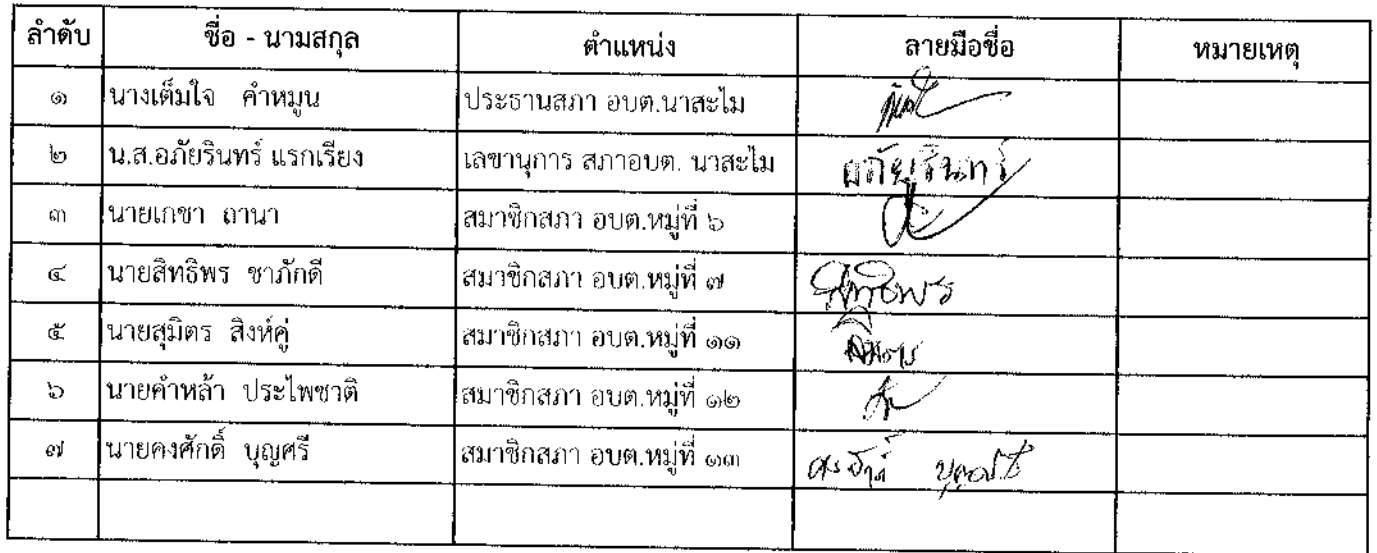 ลำดับ ชื่อ - นามสกุล ตำแหน่ง ลายมือชื่อ หมายเหตุ
๑ นางเต็มใจ คำหมูน ประธานสภา อบต.นาสะไม
๒ น.ส.อภัยรินทร์ แรกเรียง เลขานุการ สภาอบต. นาสะไม อภัยรินทร์
๓ นายเกษา ถานา สมาชิกสภา อบต.หมู่ที่ ๖
๔ นายสิทธิพร ชาภักดี สมาชิกสภา อบต.หมู่ที่ ๗ สิทธิพร
๕ นายสุมิตร สิงห์คู่ สมาชิกสภา อบต.หมู่ที่ ๑๑
๖ นายคำหล้า ประไพชาติ สมาชิกสภา อบต.หมู่ที่ ๑๒
๗ นายคงศักดิ์ บุญศรี สมาชิกสภา อบต.หมู่ที่ ๑๓